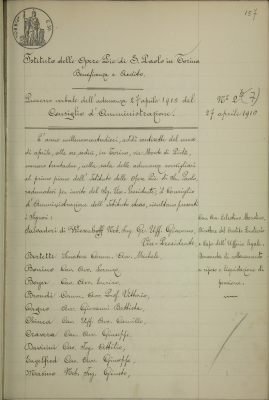 157
Istituto delle Opere Pie di S. Paolo in Torino
Beneficenza e Credito.
Processo verbale dell'adunanza 27 aprile 1910 del
Consiglio d'Amministrazione.
N° 2
(7)
27 aprile 1910
L'anno millenovecentodieci, addì ventisette del mese
di aprile, alle ore sedici, in Torino, via Monte di Pietà,
numero trentadue, nella sala delle adunanze consigliari
al primo piano dell'Istituto delle Opere Pie di San Paolo,
radunatosi per invito del Sig. Vice Presidente, il Consiglio
d'Amministrazione dell'Istituto stesso, risultano presenti
i Signori:
Salvadori di Wiesenhoff Nob. Ing. Gr. Uff. Giacomo,
Vice Presidente
Bertetti Comm. Avv. Michele,
Bonino Cav. Avv. Lorenzo
Boyer Cav. Avv.
Brondi Comm. Avv. Prof. Vittorio,
Avv. Giovanni Battista,
Chiesa Cav. Uff. Avv. Camillo,
Cravera Cav. Avv. Giuseppe,
Cav. Ing. Attilio,
Engelfred Cav. Avv. Giuseppe,
Nob. Ing.
Cav. Avv. Celestino
Direttore del Credito Fondiario
e Capo dell'Ufficio legale.
Domanda di collocamento
a riposo e liquidazione di
pensione.